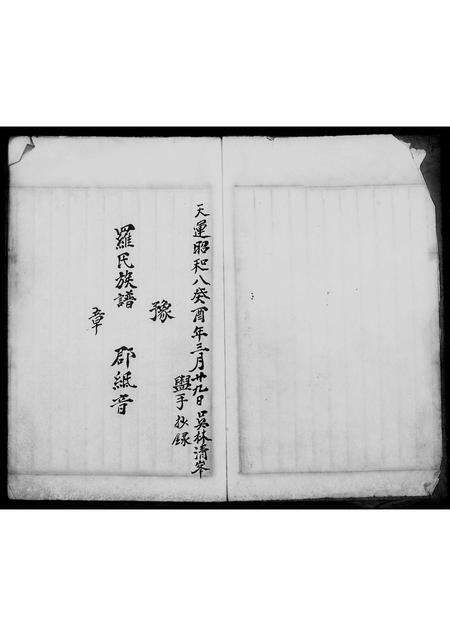 天運昭和八癸酉年三月廿九日吳林清岑
與手抄錄
豫
羅氏族譜 郡紙音
章